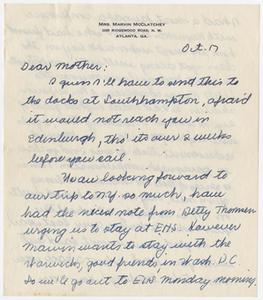 MRS. MARVIN MCCLATCHEY
RIDGEWOOD ROAD, N. W.
ATLANTA, GA.
Oct. 17
Dear Mother:
I guess I'll have to send this to
the docks at Southampton, afraid
it would not reach you in
Edinburgh, tho' it's over 2 weeks
before you sail.
We are looking forward to
our trip to N.Y. so much, have
had the nicest note from Betty
urging us to stay at EHS. However
Marvin wants to stay with the
Warwicks, good friends in Wash. D.C.
So we'll go out to EHS Monday morning.